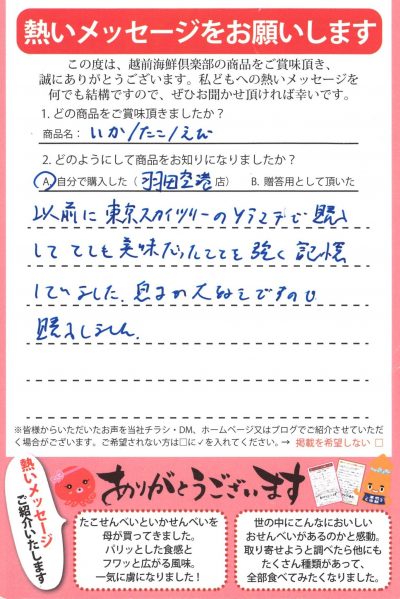 熱いメッセージをお願いします
この度は、越前海鮮倶楽部の商品をご賞味頂き、
誠にありがとうございます。私どもへの熱いメッセージを
何でも結構ですので、ぜひお聞かせ頂ければ幸いです。
1. どの商品をご賞味頂きましたか?
商品名：いか/たこ/えび
2. どのようにして商品をお知りになりましたか?
A. 自分で購入した（羽田空港店） B. 贈答用として頂いた
以前に東京スカイツリーのソラマチで購入
してとても美味だったことを強く記憶
していました。息子が大好きですので
購入しました。
※皆様からいただいたお声を当社チラシ・DM、ホームページ又はブログでご紹介させていただ
く場合がございます。ご希望されない方は□に✓を入れてください。→ 掲載を希望しない □
熱いメッセージ
ご紹介いたします
ありがとうございます
たこせんべいといかせんべいを
母が買ってきました。
パリッとした食感と
フワッと広がる風味。
一気に虜になりました！
世の中にこんなにおいしい
おせんべいがあるのかと感動。
取り寄せようと調べたら他にも
たくさん種類があって、
全部食べてみたくなりました。